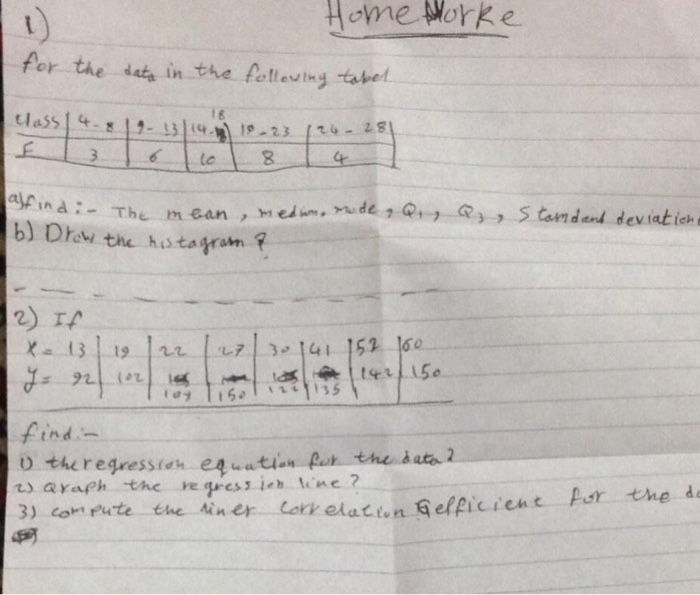 Home Worke
1)
for the data in the following tabel
class | 4-8 | 9-13 | 14-18 | 19-23 | 24-28
F | 3 | 6 | 10 | 8 | 4
a) find :- The mean, medium, mode, Q1, Q3, Standard deviation
b) Drow the histagram ?
2) If
X = 13 | 19 | 22 | 27 | 30 | 41 | 52 | 60
Y = 92 | 102 | 109 | 150 | 122 | 135 | 142 | 150
find :-
1) the regression equation for the data ?
2) Graph the regression line ?
3) compute the liner correlation Cefficient for the da